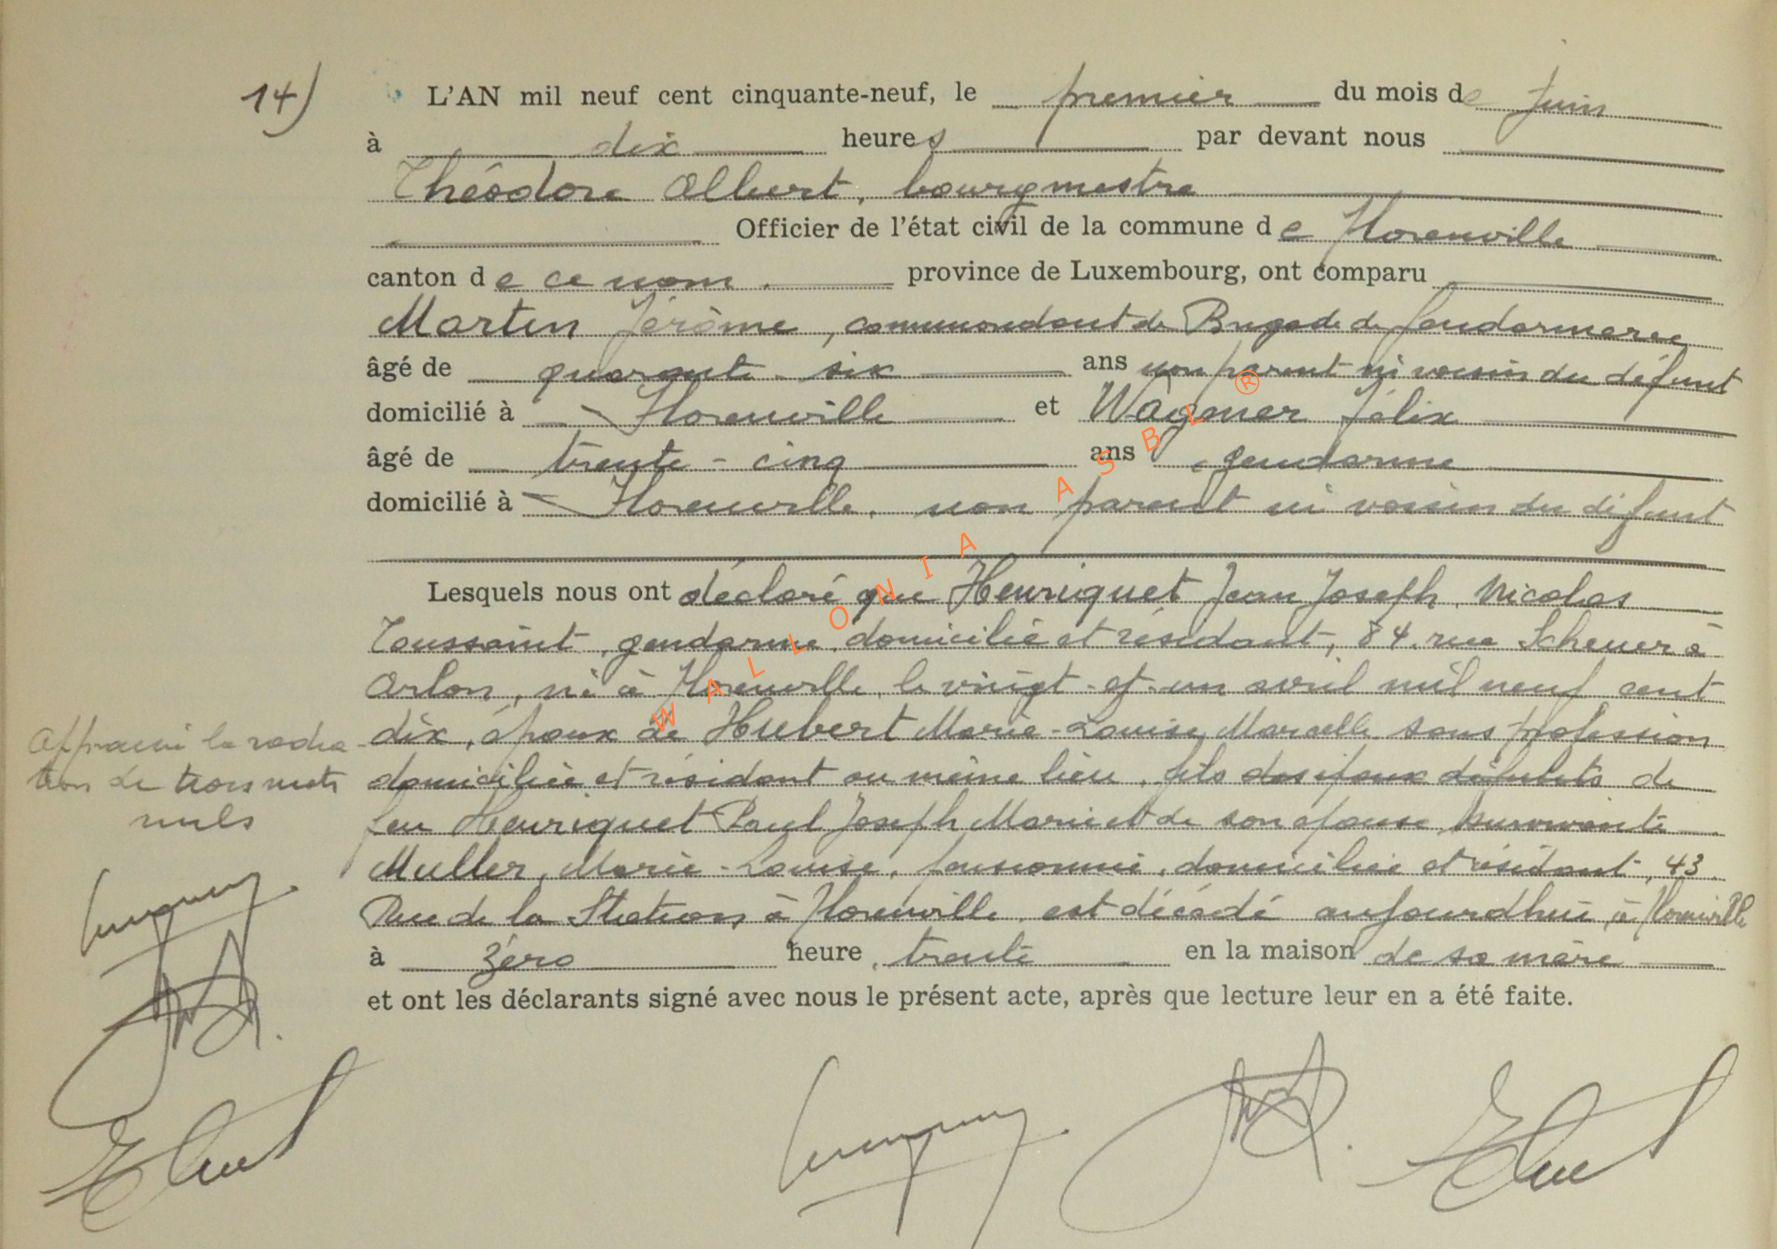 14)
L'AN mil neuf cent cinquante-neuf, le premier du mois de Juin
à dix heures par devant nous
Théodore Albert, bourgmestre
Officier de l'état civil de la commune de Florenville
canton de ce nom. province de Luxembourg, ont comparu
Martin Jérôme, commandant de Brigade de Gendarmerie
âgé de quarante-six ans non parent ni voisin du défunt
domicilié à Florenville et Wagner Félix
âgé de trente-cinq ans, gendarme
domicilié à Florenville, non parent ni voisin du défunt
Lesquels nous ont déclaré que Henriquet Jean Joseph Nicolas
Toussaint, gendarme, domicilié et résidant, 84, rue Scheuer à
Arlon, né à Florenville le vingt-et-un avril mil neuf cent
dix, époux de Hubert Marie-Louise Marcelle sans profession
domiciliée et résidant au même lieu, fils des époux défunts de
feu Henriquet Paul Joseph Marie et de son épouse survivante
Muller, Marie-Louise, pensionnée, domiciliée et résidant, 43,
Rue de la Station à Florenville est décédé aujourdhui, à Florenville
à zéro heure, trente en la maison de sa mère
et ont les déclarants signé avec nous le présent acte, après que lecture leur en a été faite.
Approuvé la radia-
tion de trois mots
nuls
WALLONIA ASBL ®